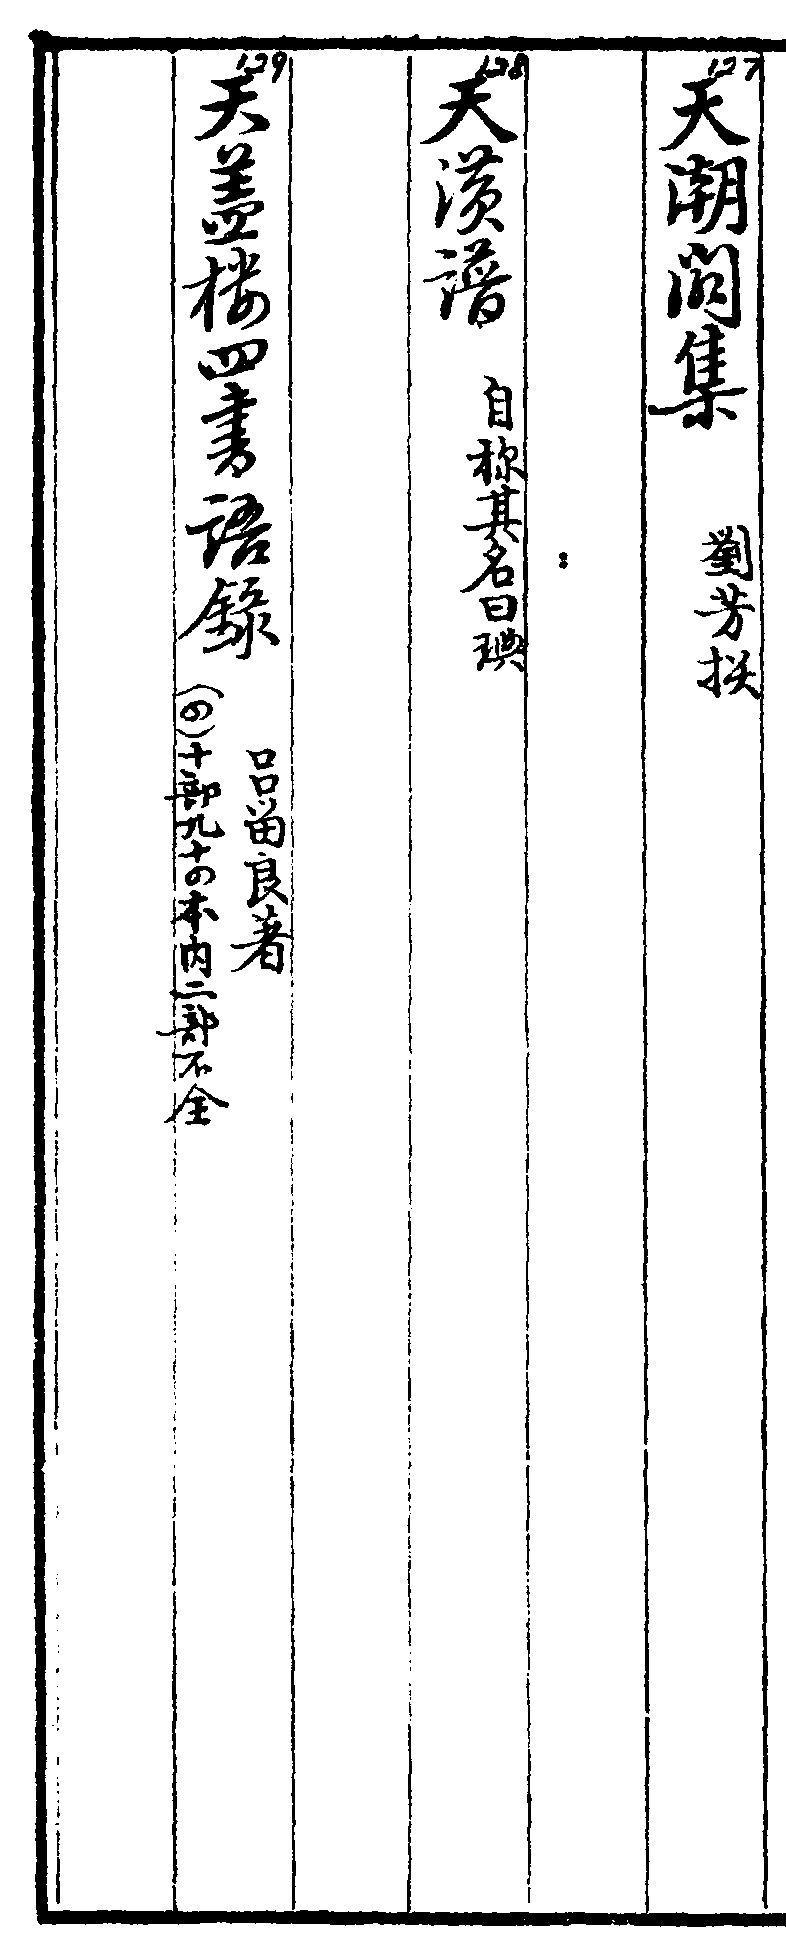 127
天潮閣集 劉芳撰
128
天潢譜 自称其名曰琠
129
天盖楼四書語錄 呂留良著
(四)十部九十四本内二部不全